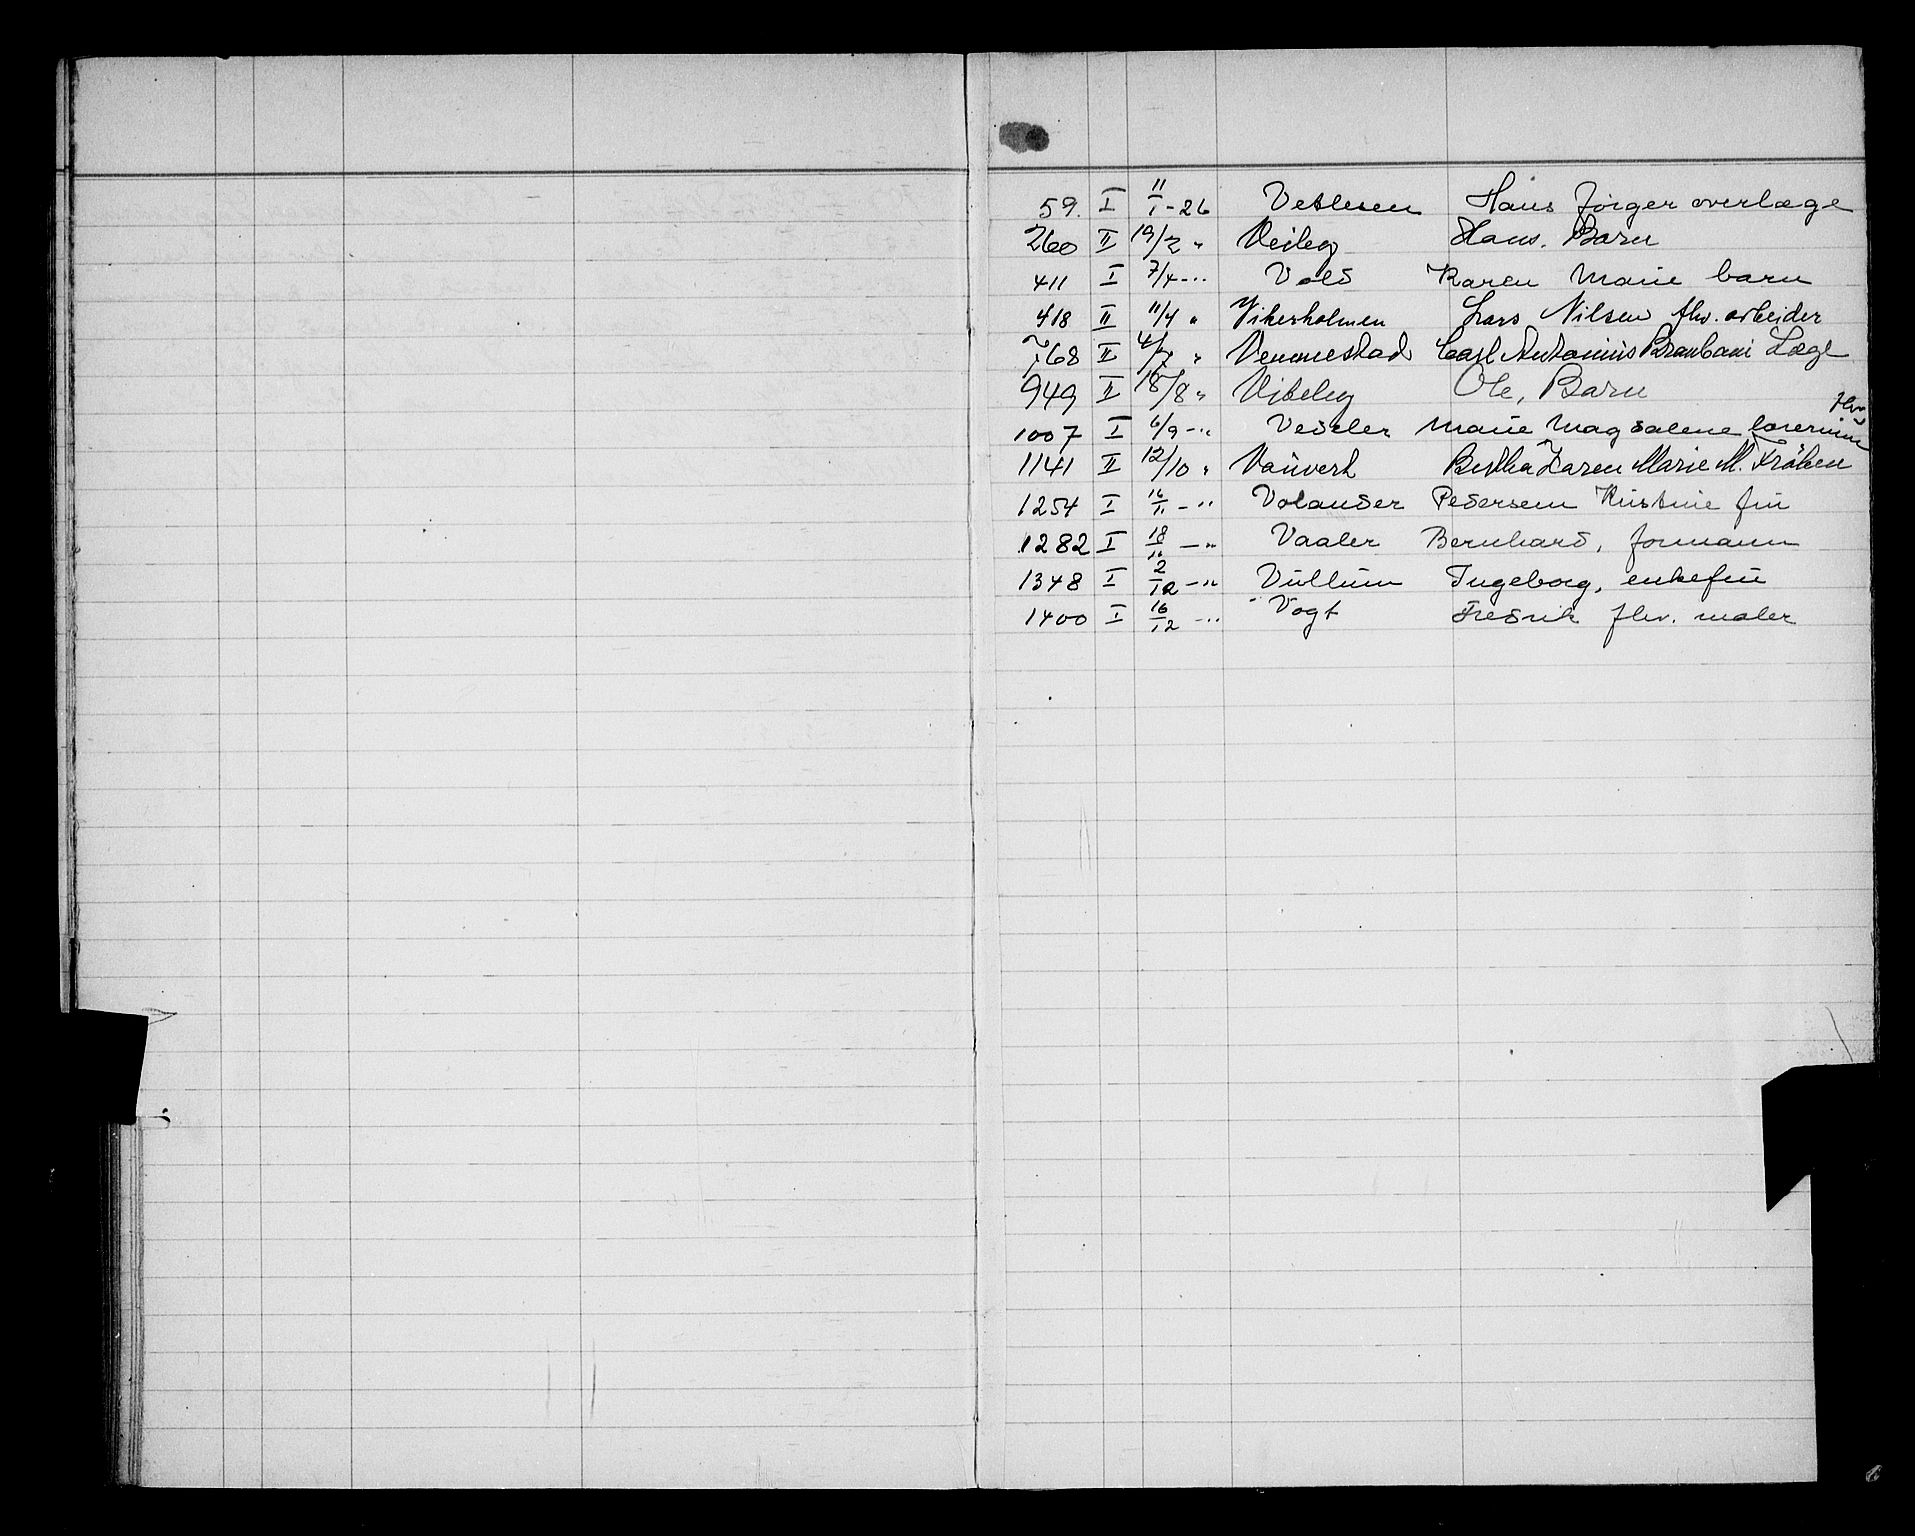 59. I 11/1-26 Vetlesen Hans Jörger overlæge
260 II 19/2 " Veileg Hans. Barn
411 I 7/4-" Vold Karen Marie barn
418 II 11/4 " Vikesholmen Lars Nilsen fhv. arbeider
768 II 4/7 " Vemmestad Carl Antonius Læge
949 II 18/8 " Ole, Barn
1007 I 6/9-" Vedeler Marie Magdalene fhv lærerinne
1141 II 12/10 " Vauvert Bertha Karen Marie M. Fröken
1254 I 16/11-" Volander Pedersen Kristine fru
1282 I 18/11-" Vaaler Bernhard, formann
1348 I 2/12-" Vullum Ingeborg, enkefru
1400 I 16/12-" Vogt Fredrik fhv. maler